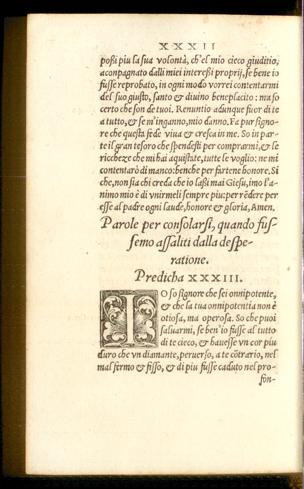 XXXII
poßi piu la sua volontà, ch'el mio cieco giuditio,
acompagnato dalli miei interesi proprij, se bene io
fusse reprobato, in ogni modo vorrei contentarmi
del suo giusto, santo & diuino beneplacito: ma so
certo che son de tuoi. Renuntio adunque fuor di te
a tutto, & se m'inganno, mio danno. Fa pur signo-
re che questa fede viua & cresca in me. So in par-
te il gran tesoro che spendesti per comprarmi, & le
richeze che mi hai aquistate, tutte le voglio: ne mi
contentarò di manco: benche per fartene honore. Si
che, non sia chi creda che io lassi mai Giesu, imo l'a-
nimo mio è di vnirmeli sempre piu: per rēdere per
esse al padre ogni laude, honore & gloria, Amen.
Parole per consolarsi, quando fus-
semo assaliti dalla despe-
ratione.
Predicha XXXIII.
IO so signore che sei onnipotente,
& che la tua onnipotentia non è
otiosa, ma operosa. So che puoi
saluarmi, se ben'io fusse al tutto
di te cieco, & hauesse vn cor piu
duro che vn diamante, peruerso, a te cōtrario, nel
mal firmo & fisso, & di piu fusse caduto nel pro-
fon-